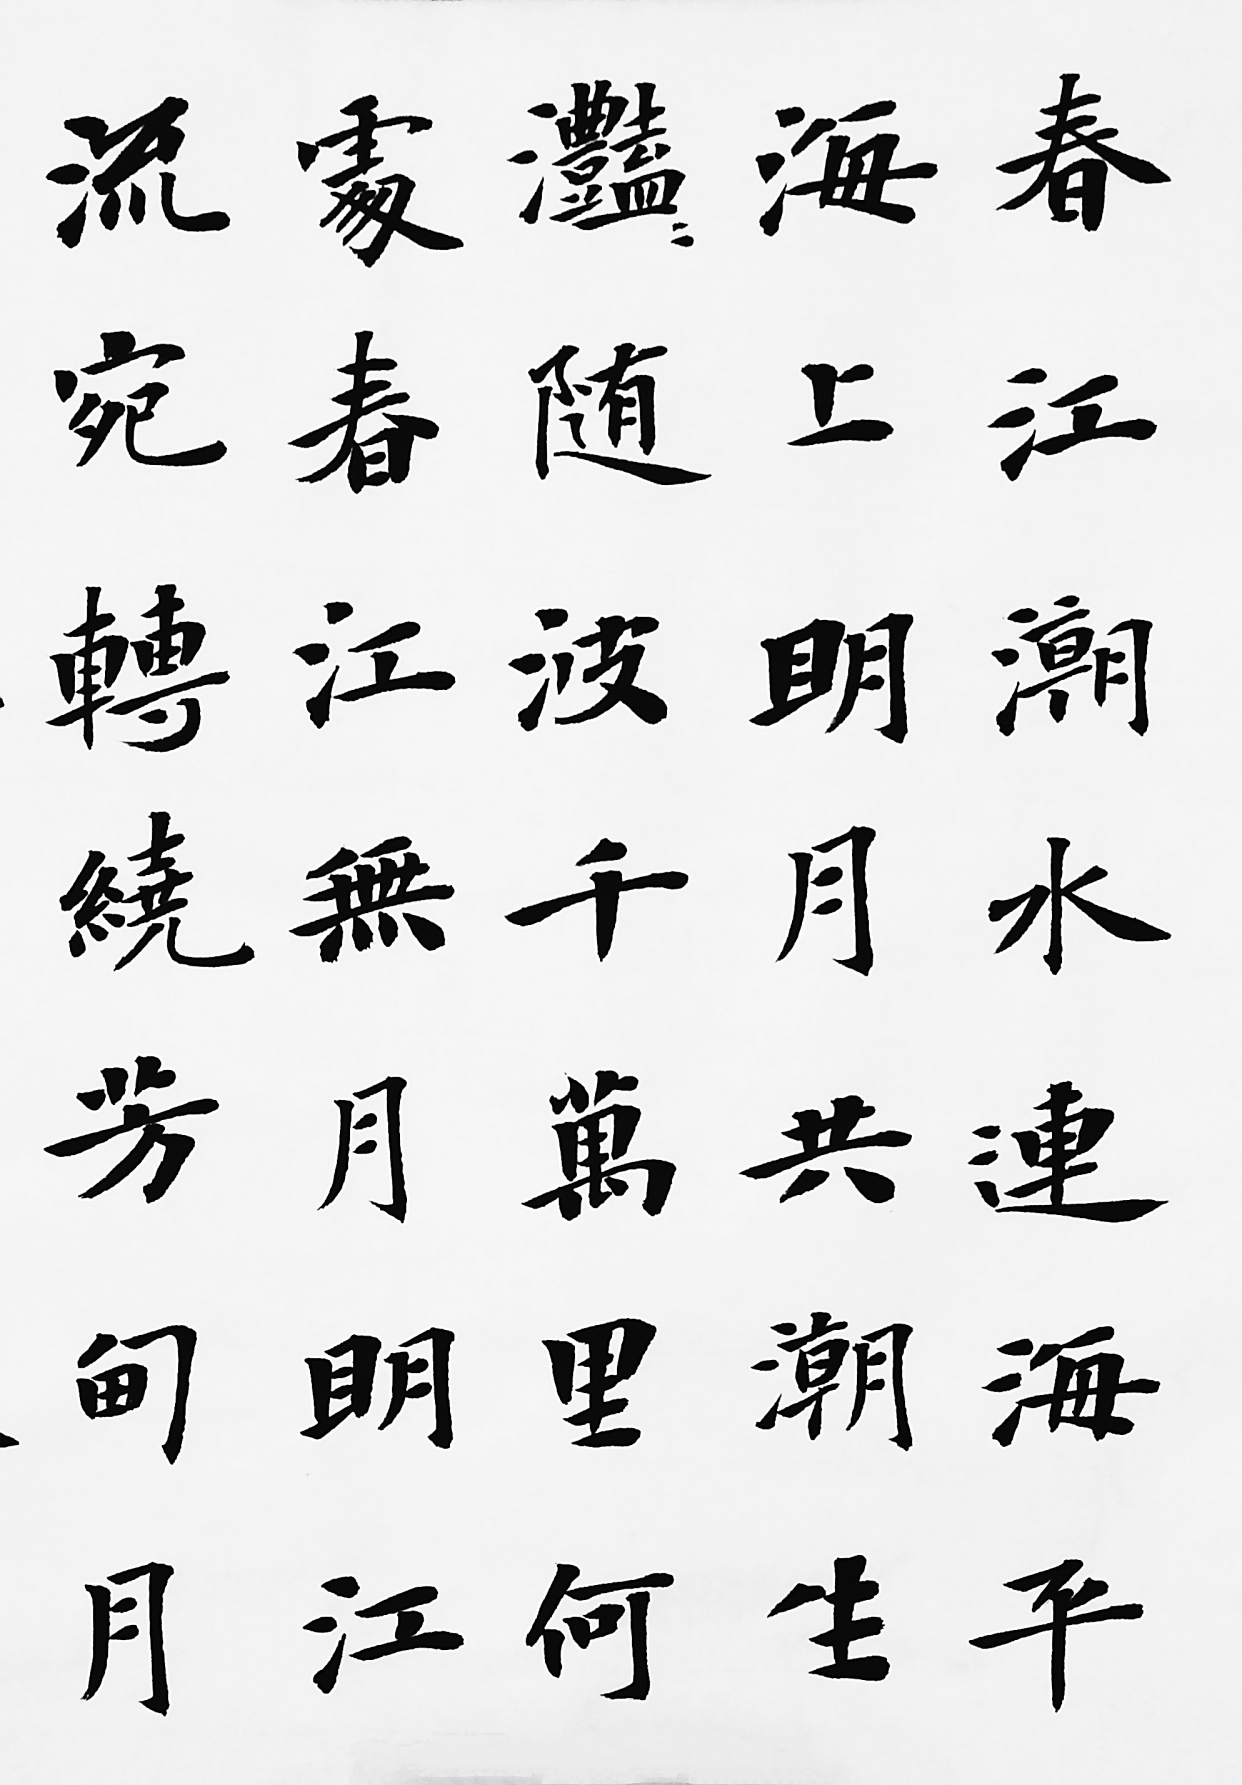 春江潮水連海平
海上明月共潮生
灩〻随波千萬里何
處春江無月明江
流宛轉繞芳甸月